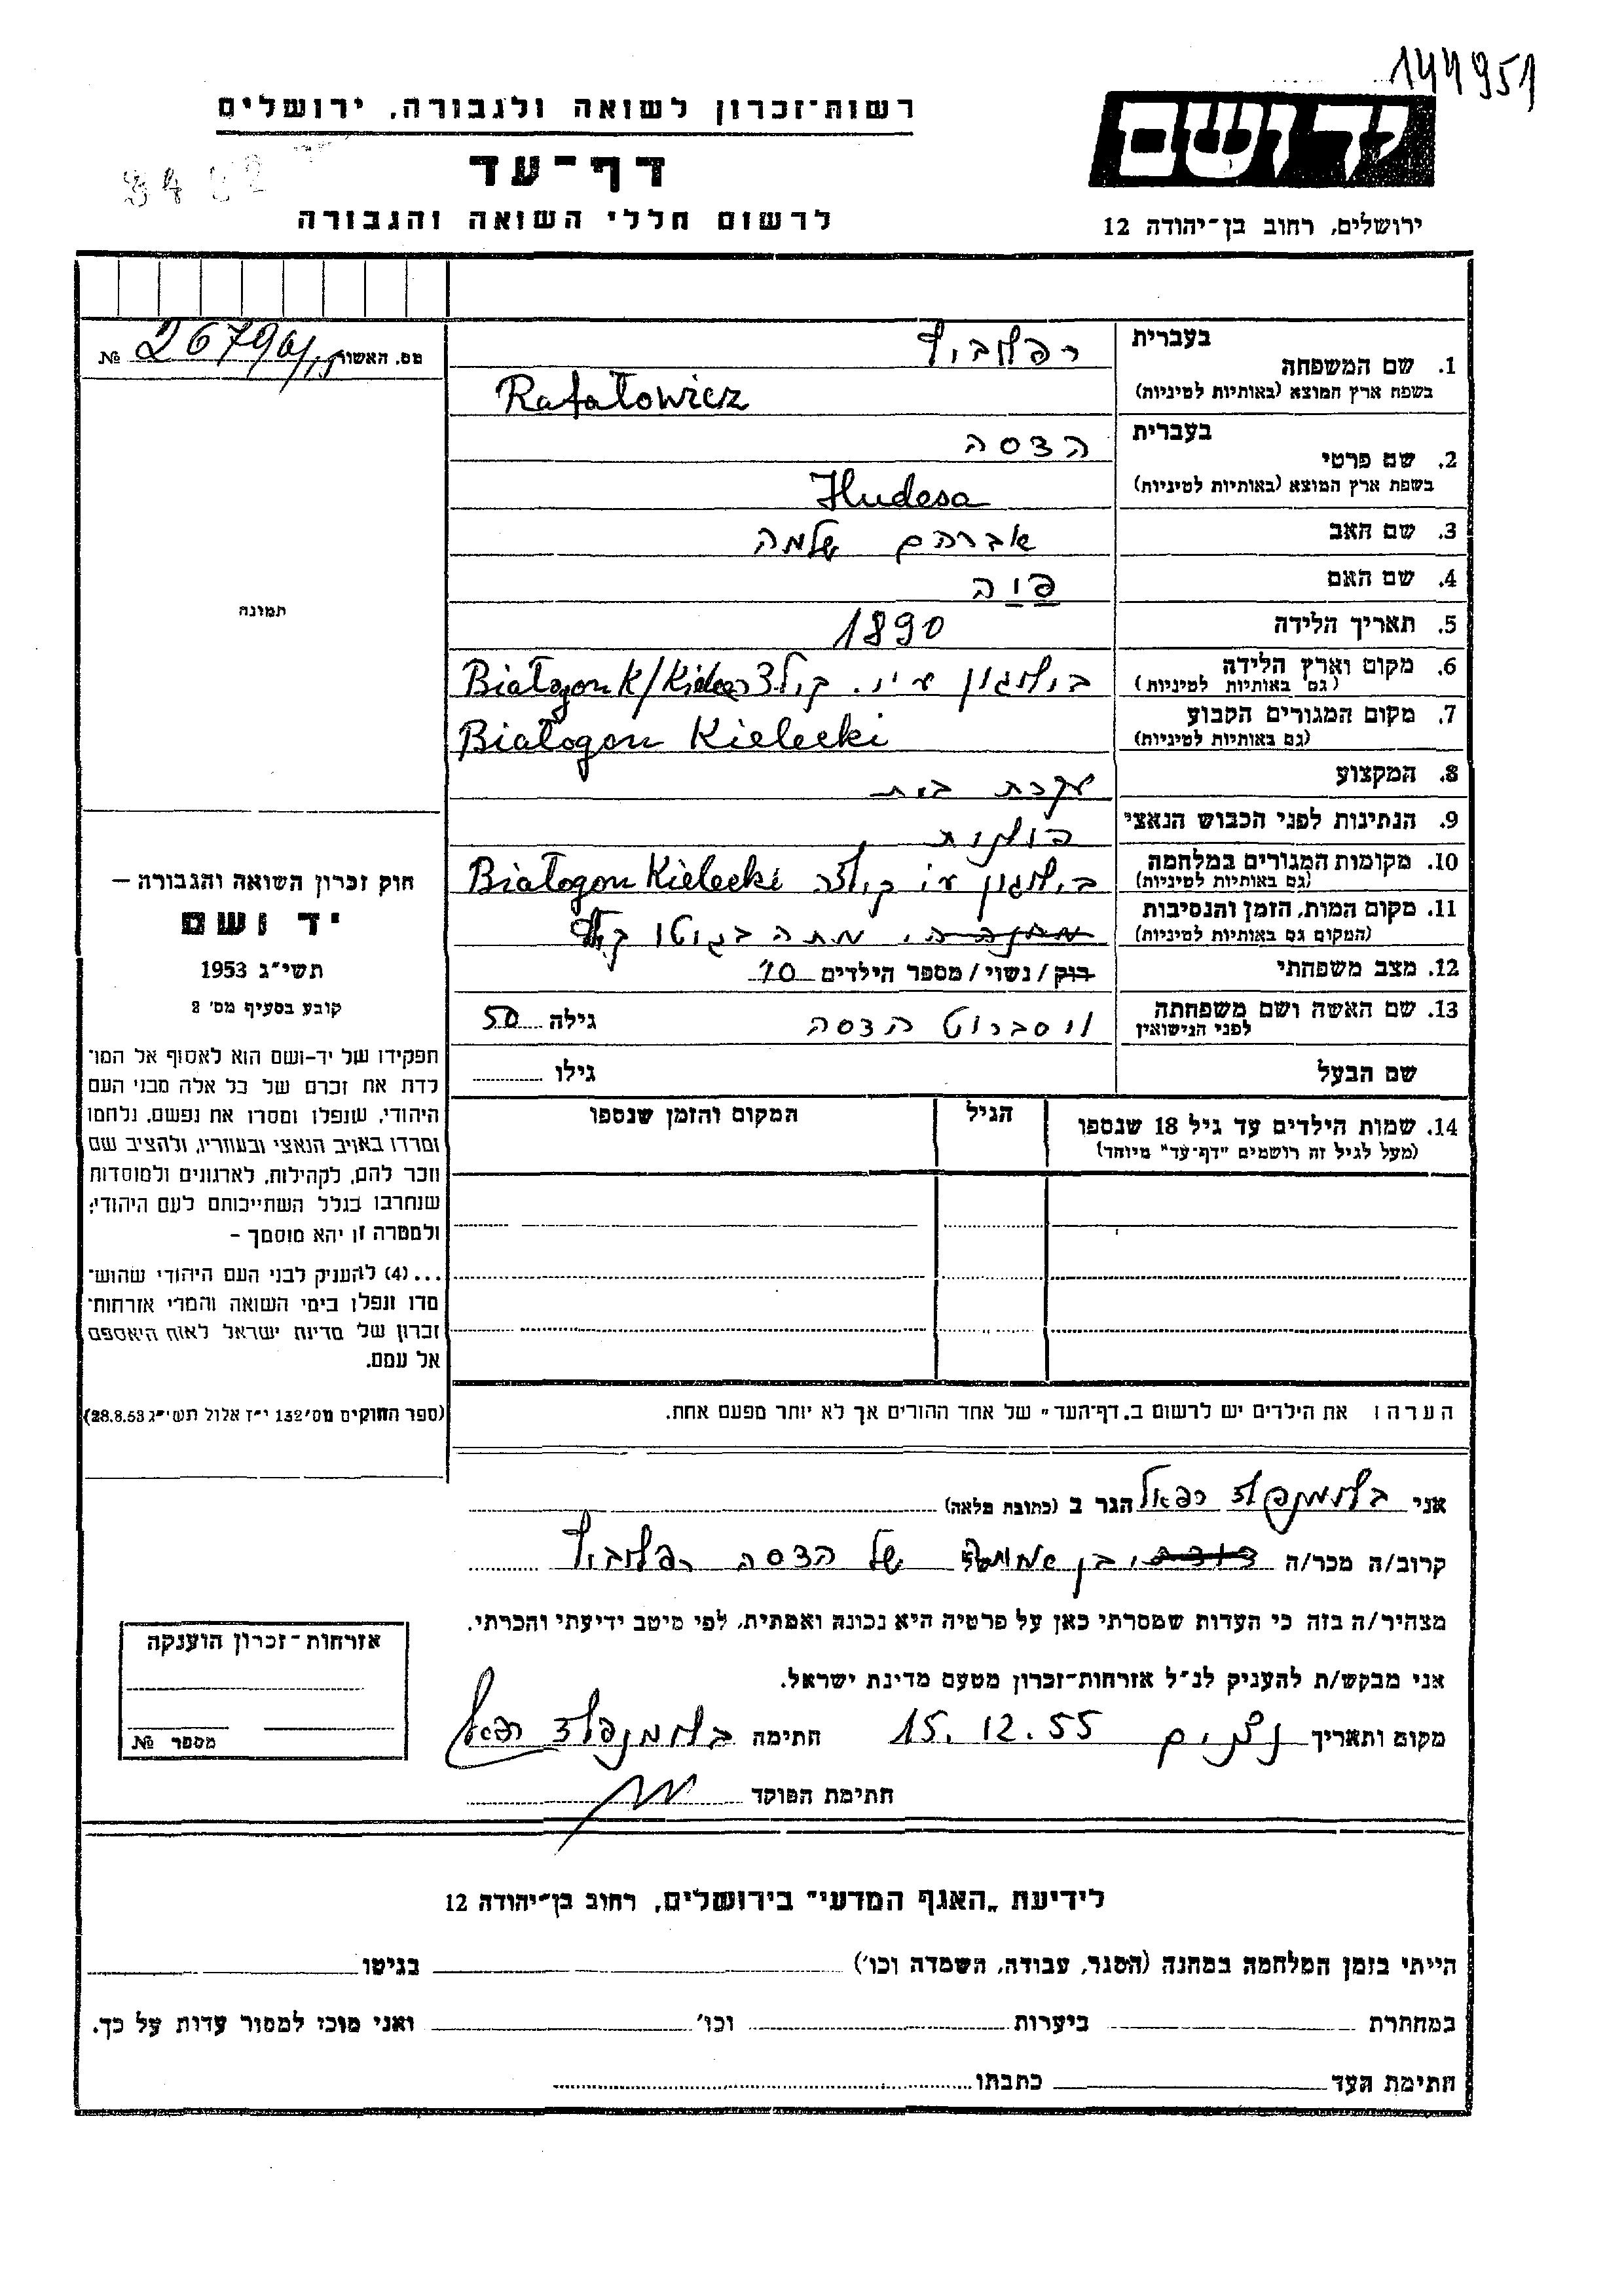 144951
ידושם
ירושלים, רחוב בן־יהודה 12
רשות־זכרון לשואה ולגבורה, ירושלים
דף־עד
לרשום חללי השואה והגבורה
מס. האשור № 26796/
תמונה
בעברית רפלוביץ
1. שם המשפחה
בשפת ארץ המוצא (באותיות לטיניות) Rafałowicz
בעברית הדסה
2. שם פרטי
בשפת ארץ המוצא (באותיות לטיניות) Hudesa
3. שם האב אברהם שלמה
4. שם האם
5. תאריך הלידה 1890
6. מקום וארץ הלידה
(גם באותיות לטיניות) Białogon K/
7. מקום המגורים הקבוע
(גם באותיות לטיניות) Białogon Kielecki
8. המקצוע עקרת בית
9. הנתינות לפני הכבוש הנאצי
10. מקומות המגורים במלחמה
(גם באותיות לטיניות) Białogon Kielecki
11. מקום המות, הזמן והנסיבות
(המקום גם באותיות לטיניות) מתה בגיטו
12. מצב משפחתי רוק / נשוי / מספר הילדים 10
13. שם האשה ושם משפחתה
לפני הנישואין הדסה גילה 50
שם הבעל גילו
14. שמות הילדים עד גיל 18 שנספו הגיל המקום והזמן שנספו
(מעל לגיל זה רושמים "דף־עד" מיוחד)
הערה: את הילדים יש לרשום ב„דף־העד" של אחד ההורים אך לא יותר מפעם אחת.
חוק זכרון השואה והגבורה —
יד ושם
תשי״ג 1953
קובע בסעיף מס׳ 2
תפקידו של יד-ושם הוא לאסוף אל המו־
לדת את זכרם של כל אלה מבני העם
היהודי, שנפלו ומסרו את נפשם, נלחמו
ומרדו באויב הנאצי ובעוזריו, ולהציב שם
וזכר להם, לקהילות, לארגונים ולמוסדות
שנחרבו בגלל השתייכותם לעם היהודי;
ולמטרה זו יהא מוסמך —
... (4) להעניק לבני העם היהודי שהוש־
מדו ונפלו בימי השואה והמרי אזרחות־
זכרון של מדינת ישראל לאות היאספם
אל עמם.
(ספר החוקים מס׳ 132 י״ז אלול תשי״ג 28.8.53)
אני רפאל הגר ב (כתובת מלאה)
קרוב/ה מכר/ה בן של הדסה רפלוביץ
מצהיר/ה בזה כי העדות שמסרתי כאן על פרטיה היא נכונה ואמתית, לפי מיטב ידיעתי והכרתי.
אני מבקש/ת להעניק לנ״ל אזרחות־זכרון מטעם מדינת ישראל.
מקום ותאריך 15.12.55 חתימה רפאל
חתימת הפוקד
אזרחות־זכרון הוענקה
מספר №
לידיעת „האגף המדעי" בירושלים, רחוב בן־יהודה 12
הייתי בזמן המלחמה במחנה (הסגר, עבודה, השמדה וכו׳) בגיטו
במחתרת ביערות וכו׳ ואני מוכן למסור עדות על כך.
חתימת העד כתבתו